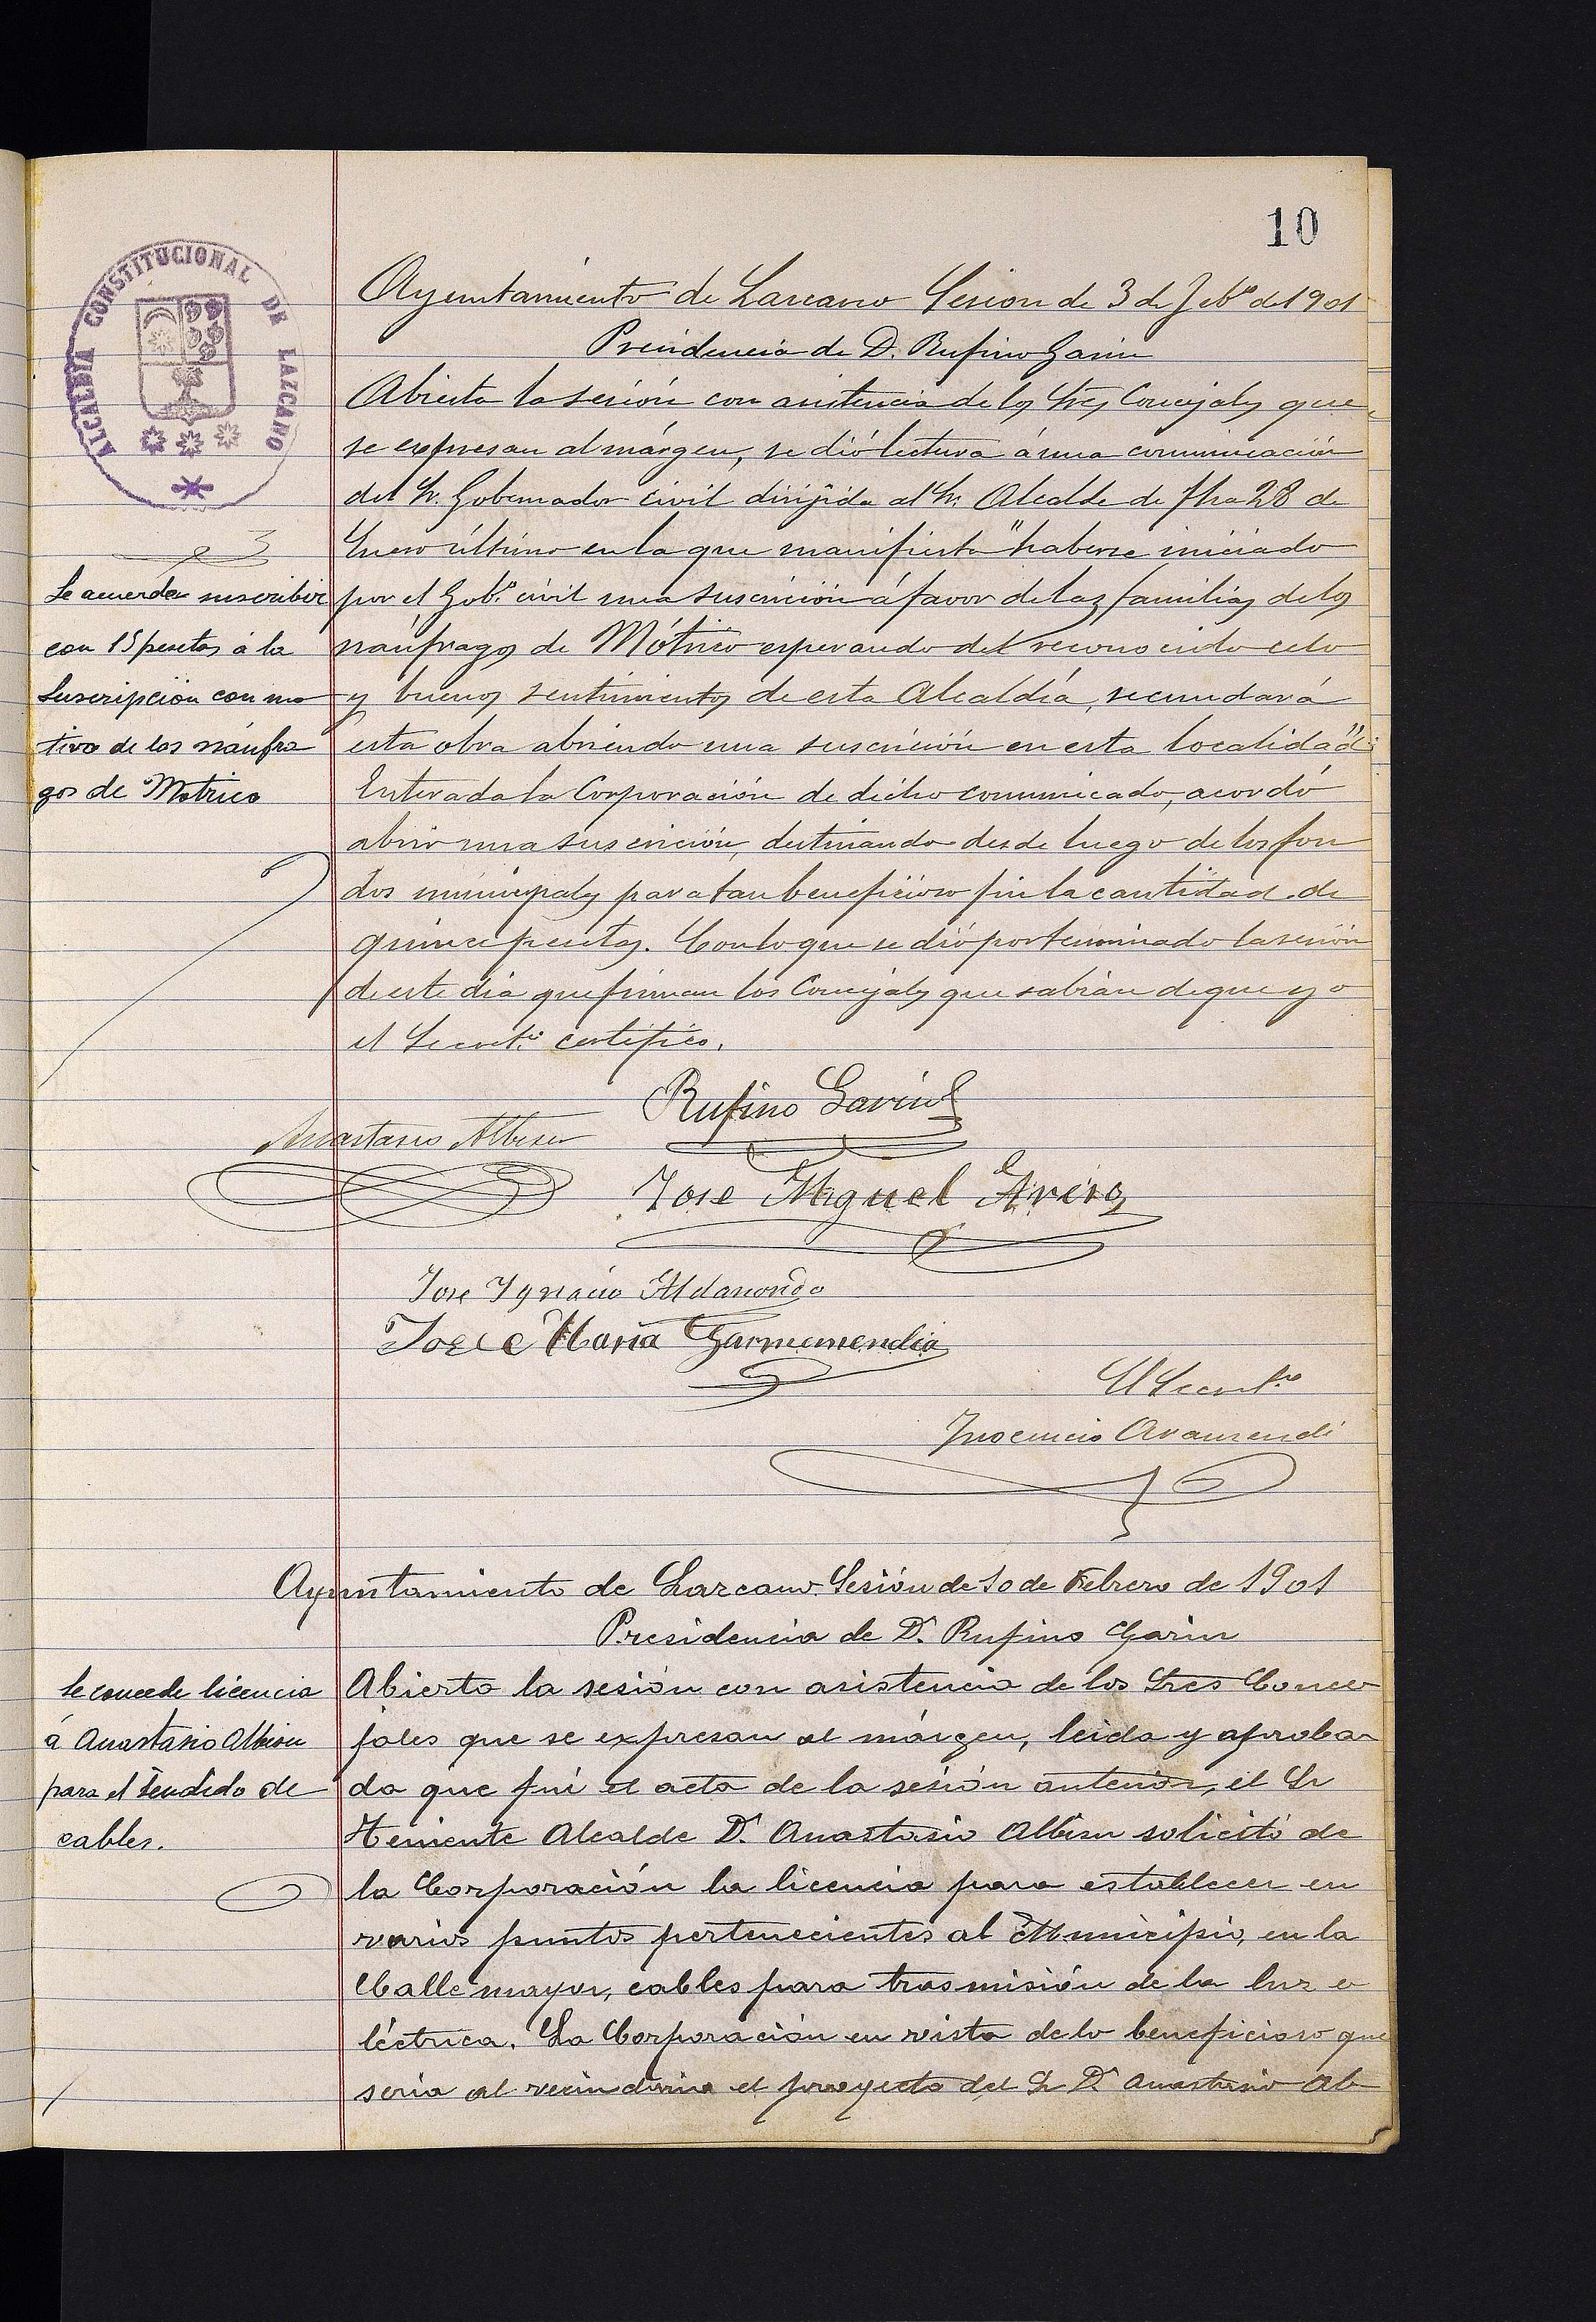 10
ALCALDIA CONSTITUCIONAL DE LAZCANO
Ayuntamiento de Lazcano Sesion de 3 de Feb.º de 1901
Presidencia de D. Rufino Garin
Abierta la sesión con asistencia de los Sres Concejales que
se expresan al márgen, se dió lectura á una comunicación
del Sr. Gobernador civil dirijida al Sr. Alcalde de fha 28 de
Enero último en la que manifiesta "haberse iniciado
por el Gob.º civil una suscrición á favor de las familias de los
náufragos de Mótrico esperando del reconocido celo
y buenos sentimientos de esta Alcaldía, secundará
esta obra abriendo una suscrición en esta localidad"
Enterada la Corporación de dicho comunicado, acordó
abrir una suscrición, destinando desde luego de los fon
dos municipales para tan beneficioso fin la cantidad de
quince pesetas. Con lo que se dió por terminado la sesión
de este dia que firman los Concejales que sabian de que yo
el Secret.º certifico.
Se acuerda suscribir
con 15 pesetas á la
Suscripción con mo
tivo de los náufra
gos de Motrico
Rufino Garin
Anastasio Albisu
Jose Miguel
Jose Ygnacio Aldasoro
Jose Maria Garmendia
El Secret.º
Inocencio Aramendi
Ayuntamiento de Lazcano. Sesión de 10 de Febrero de 1901
Presidencia de D. Rufino Garin
Abierta la sesión con asistencia de los Sres Conce
jales que se expresan al márgen, leida y aproba
da que fué el acta de la sesión anterior, el Sr
Teniente Alcalde D. Anastasio Albisu solicitó de
la Corporación la licencia para establecer en
varios puntos pertenecientes al Municipio, en la
Calle mayor, cables para trasmisión de la luz e
léctrica. La Corporación en vista de lo beneficioso que
seria al vecindario el proyecto del Sr D. Anastasio Al
Se concede licencia
á Anastasio Albisu
para el tendido de
cables.